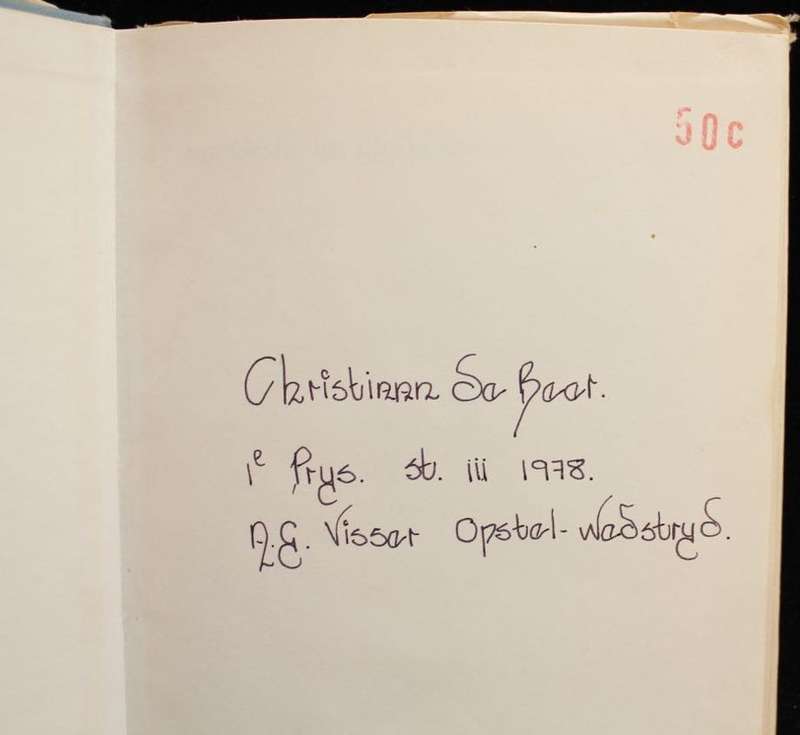 50c
Christiaan De Beer.
1e Prys. st. iii 1978.
A.G. Visser Opstel-Wedstryd.